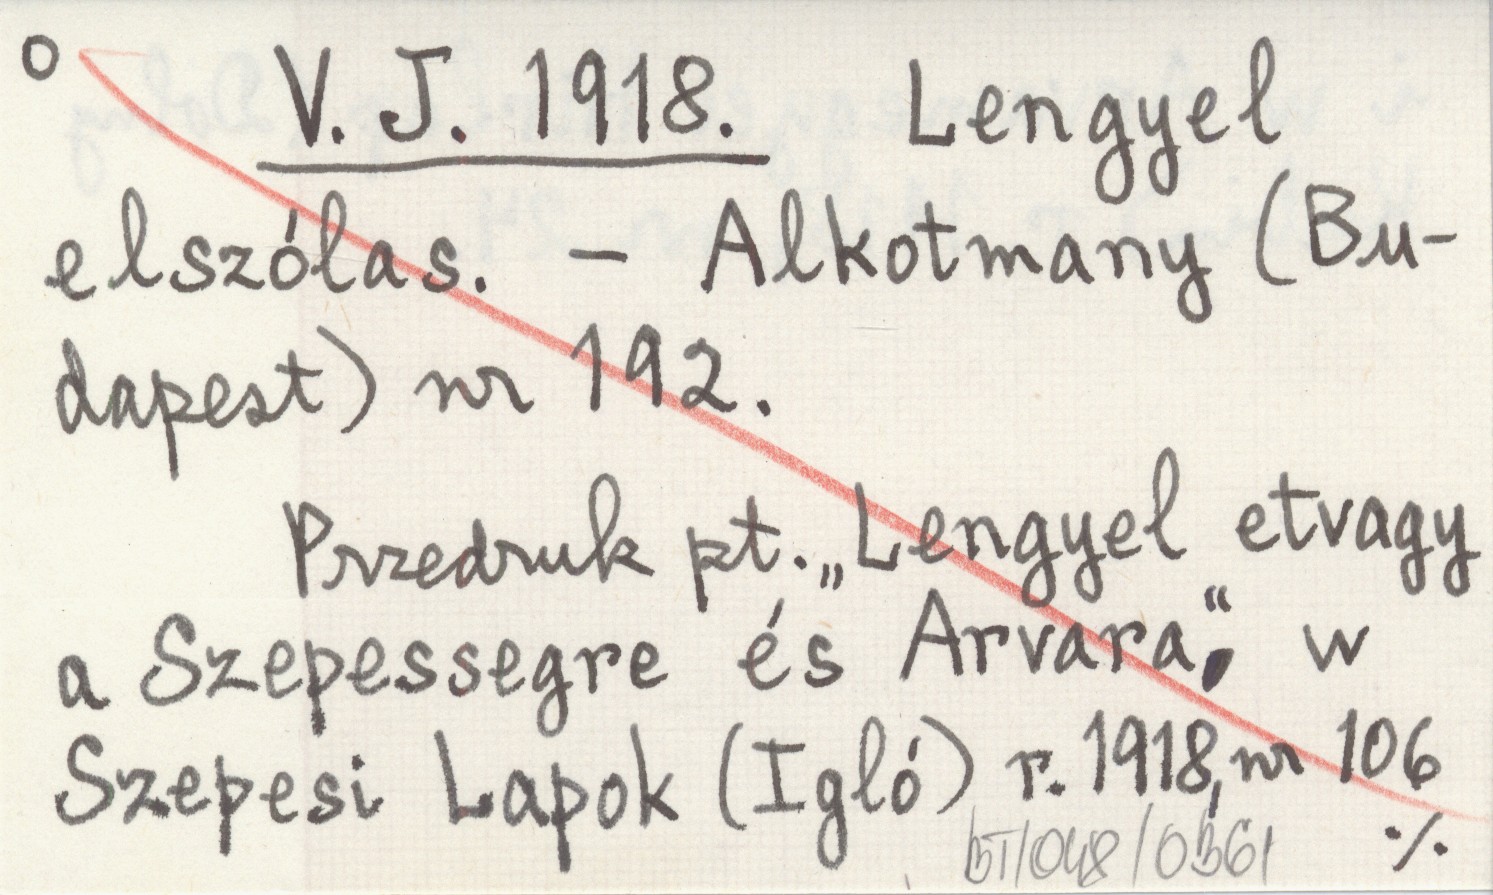 o V. J. 1918. Lengyel
elszólas. – Alkotmany (Bu-
dapest) nr 192.
Przedruk pt. „Lengyel etvagy
a Szepessegre és Arvara“, w
Szepesi Lapok (Igló) r. 1918, nr 106
BT/048/0361 ·/.